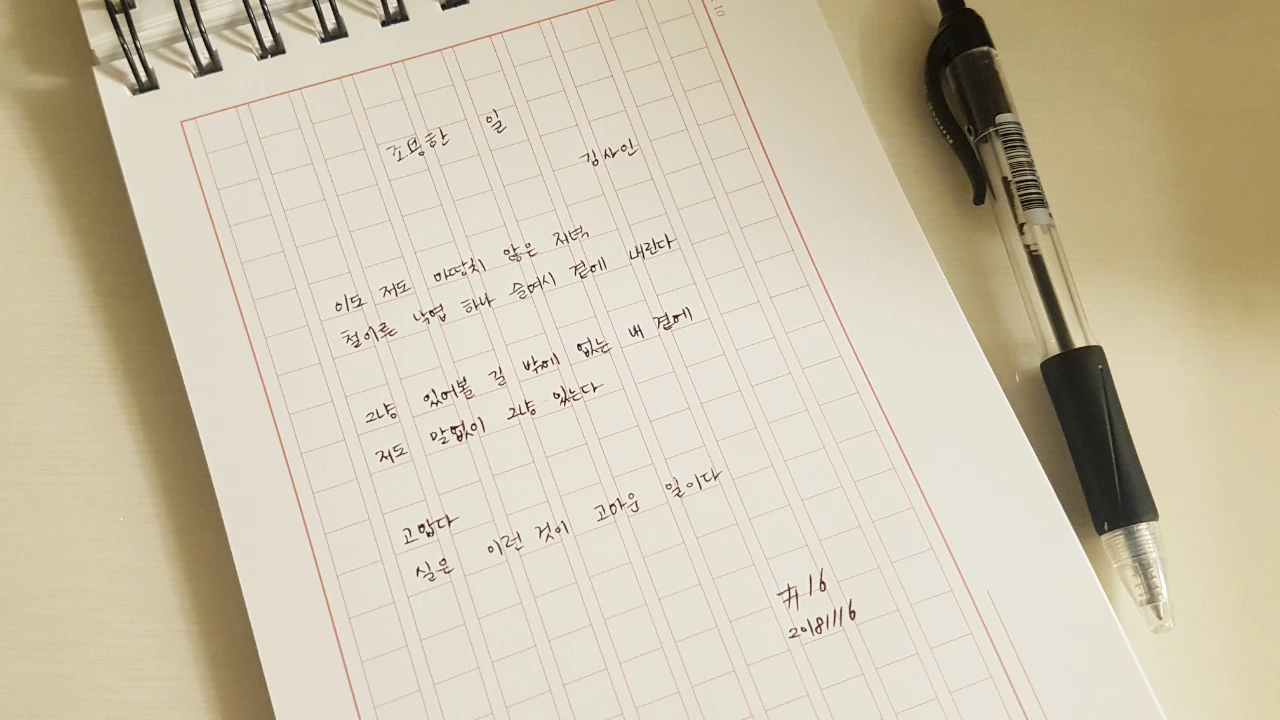 조용한 일
김사인
이도 저도 마땅치 않은 저녁
철이른 낙엽 하나 슬며시 곁에 내린다
그냥 있어볼 길 밖에 없는 내 곁에
저도 말없이 그냥 있는다
고맙다
실은 이런 것이 고마운 일이다
#16
20181116